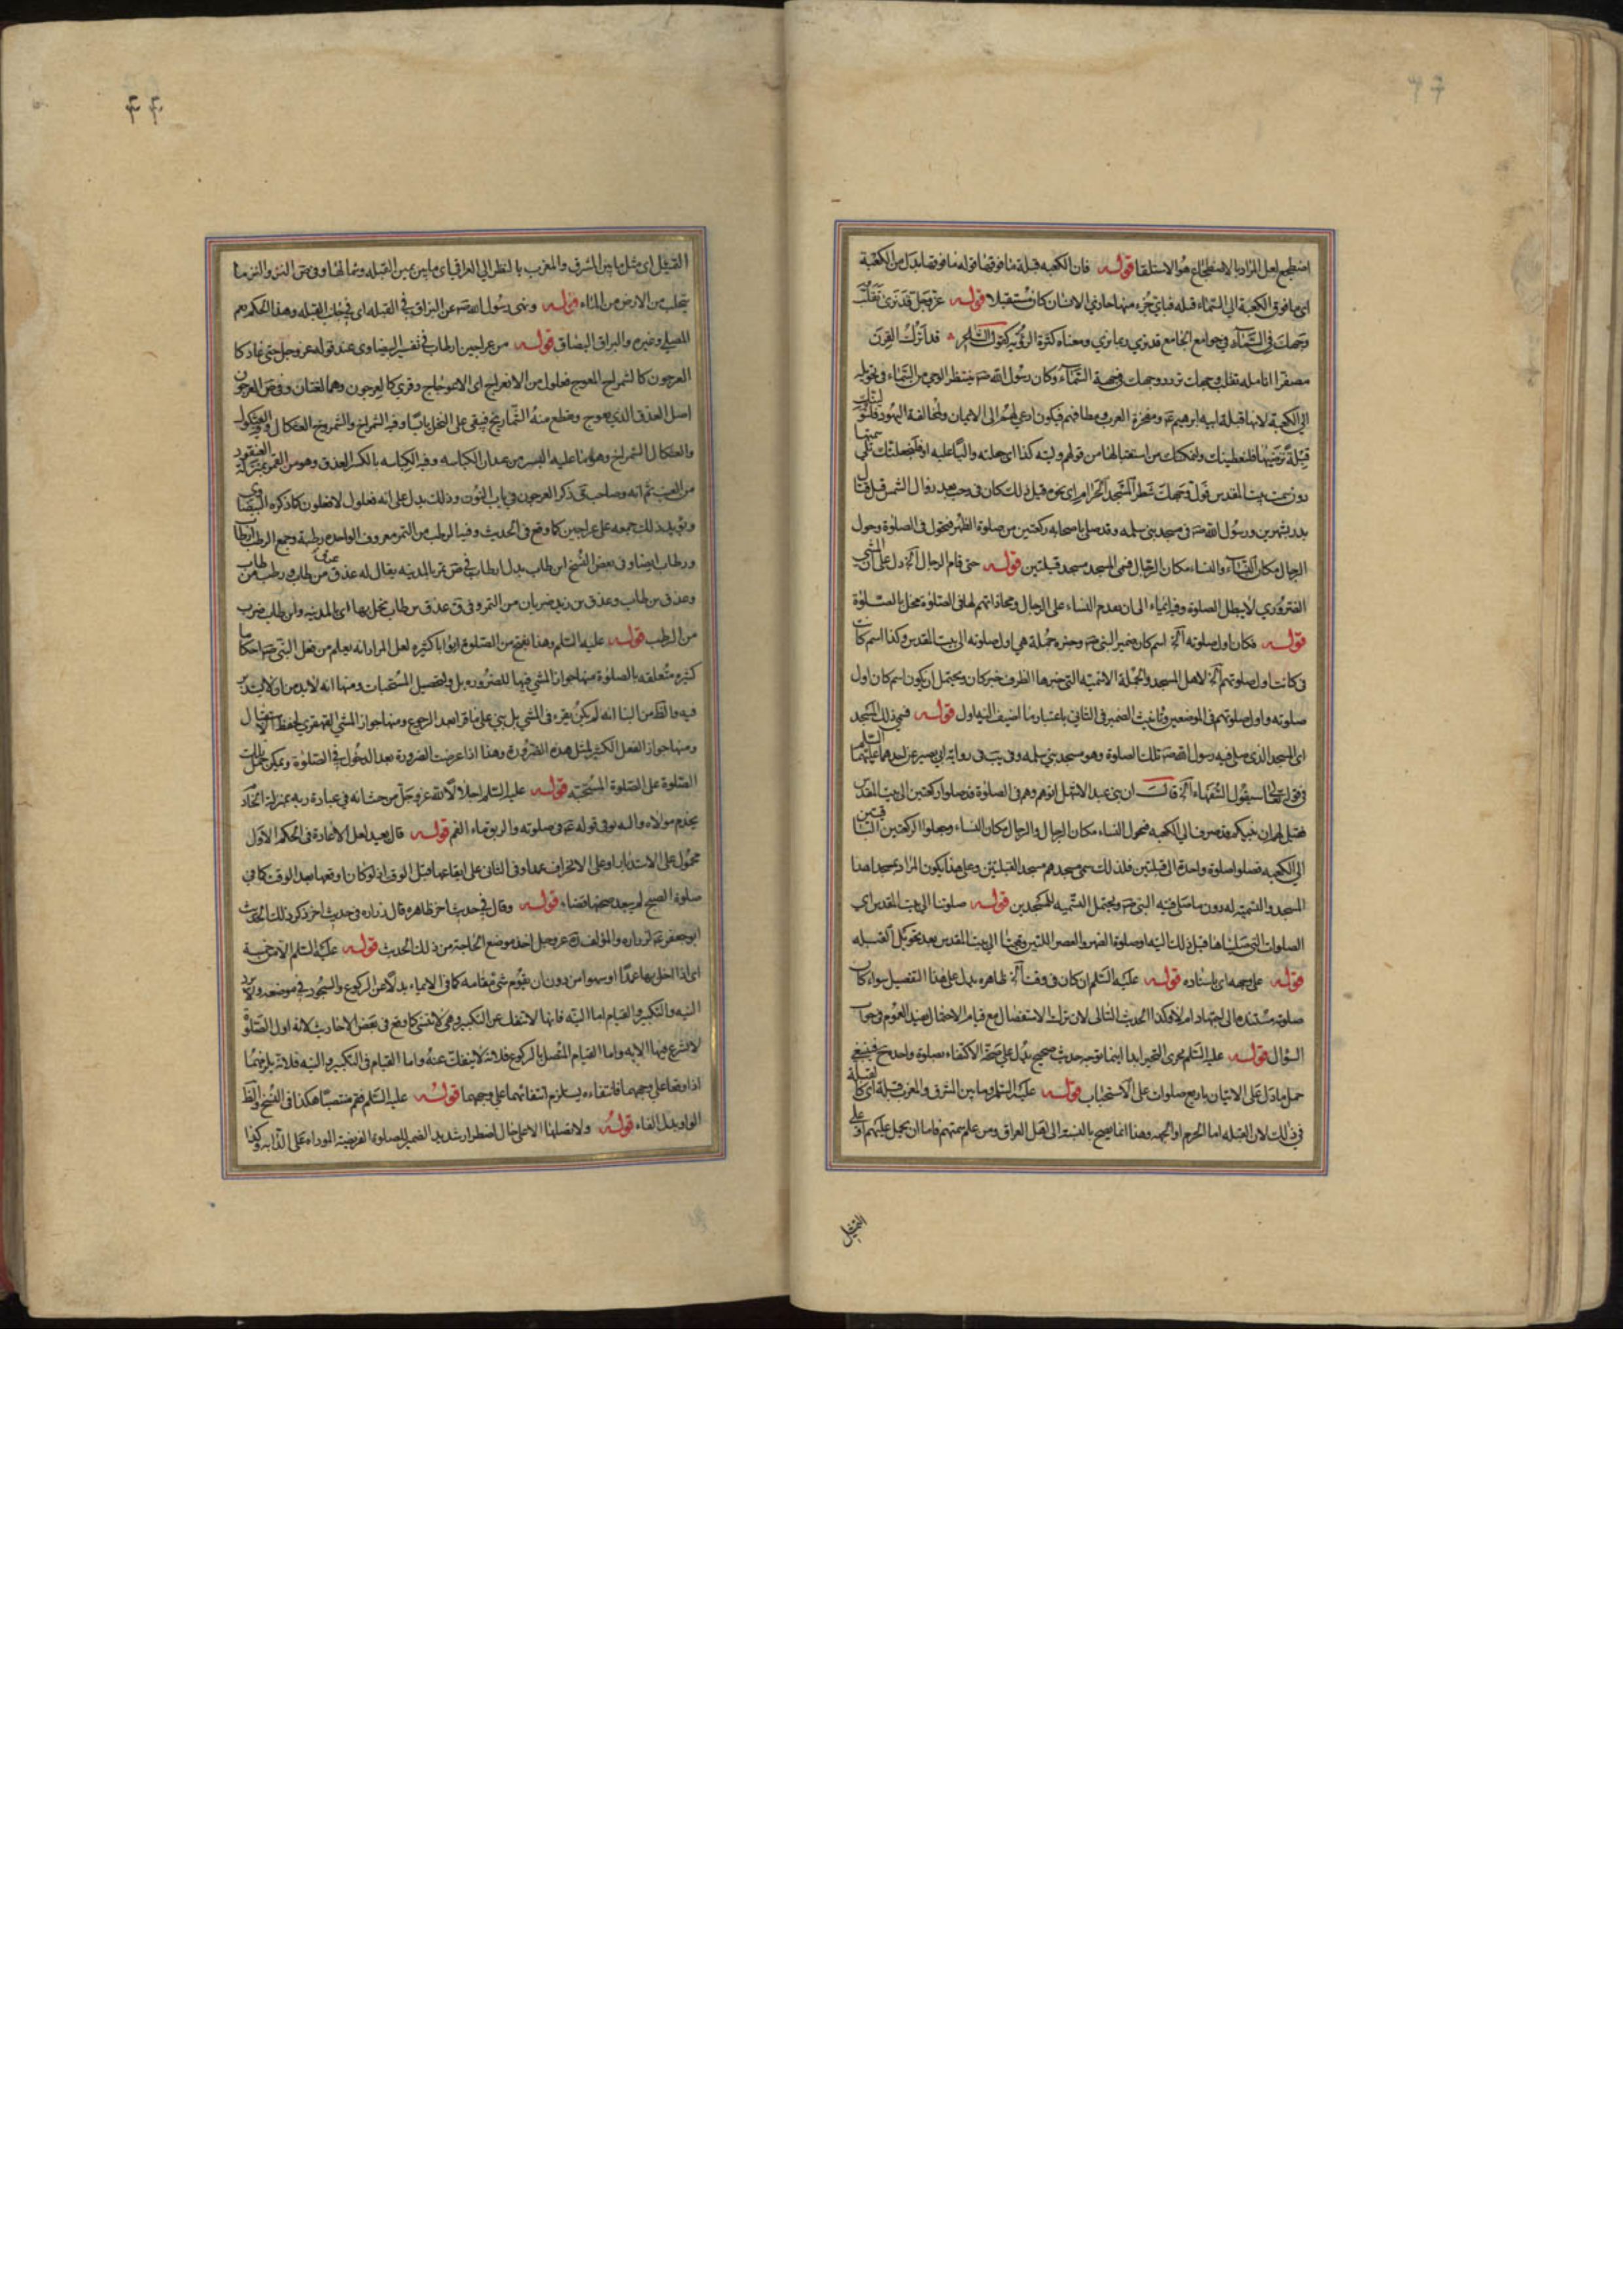 اضطجع لعل المراد بالاضطجاع هو الاستلقا قوله فان الكعبه قبلة ما فوقها قوله ما فوقها بدل من الكعبة
اى ما فوق الكعبة الى السماء قبله فباى جزء منها حاذى الانسان كان مستقبلا قوله عز وجل قد نرى تقلب
وجهك فى السماء فى جوامع الجامع قد نرى ربما نرى ومعناه كثرة الرؤيه كقول الشاعر قد اترك القرن
مصفرا انامله تقلب وجهك تردد وجهك فى جهة السماء وكان رسول الله ص ينتظر الوحى من السماء فى تحويله
الى الكعبة لانها قبلة ابيه ابرهيم ع ومفخرة العرب ومطافهم فيكون ادعى لهم الى الايمان ولمخالفة اليهود فلنولينك
قبلة ترضيها فلنعطينك ولنمكنك من استقبالها من قولهم وليته كذا اى جعلته واليا عليه او فلنجعلنك تلى سمتها
دون سمت بيت المقدس فول وجهك شطر المسجد الحرام اى نحوه قيل ذلك كان فى رجب بعد زوال الشمس قبل قتال
بدر بشهرين ورسول الله ص فى مسجد بنى سلمه وقد صلى باصحابه ركعتين من صلوة الظهر فتحول فى الصلوة وحول
الرجال مكان النساء والنساء مكان الرجال فسمى المسجد مسجد قبلتين قوله حتى قام الرجال آه دل على ان المشى
الضرورى لا يبطل الصلوة وفيه ايماء الى ان تقدم النساء على الرجال ومحاذاتهم لها فى الصلوة مخل بالصلوة
قوله فكان اول صلوته آه اسم كان ضمير النبى ص وخبره جملة هى اول صلوته الى بيت المقدس وكذا اسم كانت
فى كانت اول صلوتهم آه لاهل المسجد والجملة الاسميه التى خبرها الظرف خبر كان ويحتمل ان يكون اسم كان اول
صلوته واول صلوتهم فى الموضعين وتانيث الضمير فى الثانى باعتبار ما اضيف اليه اول قوله فسمى ذلك المسجد
اى المسجد الذى صلى فيه رسول الله ص تلك الصلوة وهو مسجد بنى سلمه وفى يب فى رواية ابى بصير عن احدهما عليهما السلم
فى قوله تعالى سيقول السفهاء آه قال ان بنى عبد الاشهل اتوهم وهم فى الصلوة قد صلوا ركعتين الى بيت المقدس
فقيل لهم ان نبيكم قد صرف الى الكعبه فتحول النساء مكان الرجال والرجال مكان النساء وجعلوا الركعتين الباقيتين
الى الكعبه فصلوا صلوة واحدة الى قبلتين فلذلك سمى مسجدهم مسجد القبلتين وعلى هذا يكون المراد بمسجد هذا
المسجد والتسمية له دون ما صلى فيه النبى ص ويحتمل التسميه للمسجدين قوله صلوتنا الى بيت المقدس اى
الصلوات التى صليناها قبل ذلك اليه او صلوة الظهر والعصر اللتين وقعتا الى بيت المقدس بعد تحويل القبله
قوله على وجهه اى باسناده قوله عليه السلم ان كان فى وقت آه ظاهره يدل على هذا التفصيل سواء كان
صلوته مستندة الى اجتهاد ام لا وكذا الحديث التالى لان ترك الاستفصال مع قيام الاحتمال يفيد العموم فى جواب
السؤال قوله عليه السلم يجزى المتحير ابدا اينما توجه حديث صحيح يدل على صحة الاكتفاء بصلوة واحدة فينبغى
حمل ما دل على الاتيان باربع صلوات على الاستحباب قوله عليه السلم وما بين المشرق والمغرب قبلة اى كالقبلة
فى ذلك لان القبله اما الحرم او الجهه وهذا انما يصح بالنسبة الى اهل العراق ومن على سمتهم فاما ان يحمل عليهم او على
التمثيل
التمثيل اى مثل ما بين المشرق والمغرب بالنظر الى العراقى اى ما بين يمين القبله وشمالها وفى ص النز والنز ما
يتحلب من الارض من الماء قوله ونهى رسول الله ص عن البزاق فى القبله اى فى جانب القبله وهذا الحكم يعم
المصلى وغيره والبزاق البصاق قوله من عراجين ارطاب فى تفسير البيضاوى عند قوله عز وجل حتى عاد كا
العرجون كالشمراخ المعوج فعلول من الانعراج اى الاعوجاج وقرى كالعرجون وهما لغتان وفى ص العرجون
اصل العذق الذى يعوج ويقطع منه الشماريخ فيبقى على النخل يابسا وفيه الشمراخ والشمروخ العثكال والعثكول
والعثكال الشمراخ وهو ما عليه البسر من عيدان الكباسه وفيه الكباسه بالكسر العذق وهو من التمر بمنزلة العنقود
من العنب ثم انه وصاحب ق ذكر العرجون فى باب النون وذلك يدل على انه فعلول لا فعلون كما ذكره البيضاوى
ويؤيد ذلك جمعه على عراجين كما وقع فى الحديث وفيه الرطب من التمر معروف الواحده رطبة وجمع الرطب ارطاب
ورطاب ايضا وفى بعض النسخ ابن طاب بدل ارطاب فى ص تمر بالمدينه يقال له عذق ابن طاب ورطب ابن طاب
وعذق بن طاب وعذق بن زيد ضربان من التمر وفى ق عذق بن طاب نخل بها اى بالمدينه وابن طاب ضرب
من الرطب قوله عليه السلم وهذا يفتح من الصلوة ابوابا كثيره لعل المراد انه يعلم من فعل النبى ص احكاما
كثيره متعلقه بالصلوة منها جواز المشى فيها للضروره بل لتحصيل المستحبات ومنها انه لا بد من
فيه والظ من البنا انه لم يكن يقرء فى المشى بل بنى على ما قرا بعد الرجوع ومنها جواز المشى القهقرى لحفظ الاستقبال
ومنها جواز الفعل الكثير لمثل هذه الضروره وهذا اذا عرضت الضرورة بعد الدخول فى الصلوة ويمكن حمل تلك
الصلوة على الصلوة المستحبة قوله عليه السلم اجلالا لله عز وجل من حيث انه فى عبادة ربه بمنزلة الخاد
يخدم مولاه واليه يومى قوله ع فى صلوته والريق ماء الفم قوله قال يعيد لعل الاعادة فى الحكم الاول
محمول على الاستدبار او على الانحراف عمدا وفى الثانى على ايقاعها قبل الوقت اذ لو كان اوقعها بعد الوقت كما فى
صلوة الصبح لم يبعد صحتها قضاء قوله وقال فى حديث اخر ظاهره قال زراره فى حديث اخر ذكر ذلك الحديث
ابو جعفر ع لزراره والمؤلف ره عز وجل اخذ موضع الحاجة من ذلك الحديث قوله عليه السلم الا من خمسة
اى اذا اخل بها عمدا او سهوا من دون ان يقوم شى مقامه كما فى الايماء بدلا عن الركوع والسجود فى موضعه ولا يرد
النيه والتكبير والقيام اما النيه فانها لا تنفك عن التكبير وهى لا تنسى كما وقع فى بعض الاخار يث لانه اول الصلوة
لا شرع فيها الا به واما القيام المتصل بالركوع فلانه لا ينفك عنه واما القيام فى التكبير والنيه فلانه يلزمهما
اذا وقعا على وجههما فانتفاءه يستلزم انتفائهما على وجههما قوله عليه السلم فقم منتصبا هكذا فى النسخ والظ
الواو بدل الفاء قوله ولا تصلهما الا على حال اضطرار شديد الضمير للصلوة الفريضية الموداه على الدابه وكذا